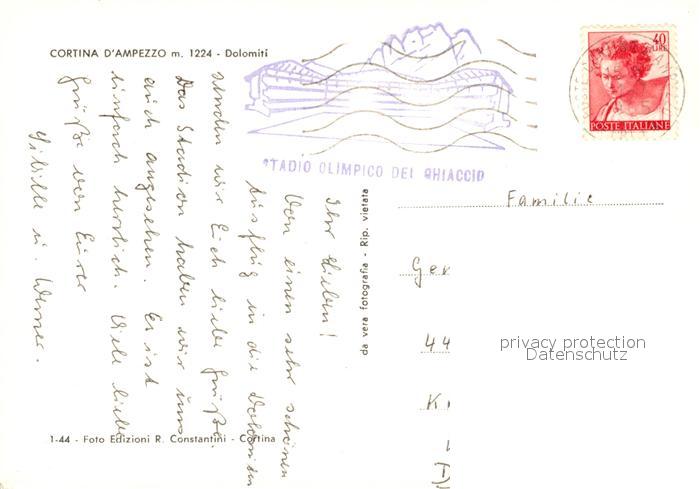 CORTINA D'AMPEZZO m. 1224 - Dolomiti
STADIO OLIMPICO DEL GHIACCIO
40
LIRE
POSTE ITALIANE
Ihr Lieben!
Von einem sehr schönen
Ausflug in die Dolomiten
senden wir Euch liebe Grüße.
Das Stadion haben wir uns
auch angesehen. Es ist
einfach herrlich. Viele liebe
Grüße von Eurer
Sibille u. Werner.
da vera fotografia - Rip. vietata
Familie
Ger
44
K
(D)
privacy protection
Datenschutz
1-44 - Foto Edizioni R. Constantini - Cortina